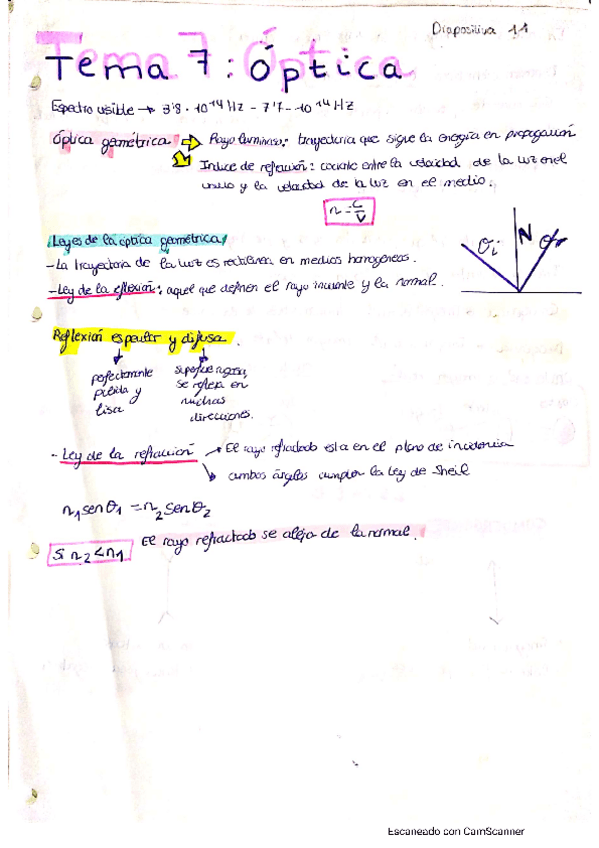 Diapositiva 11
Tema 7: Óptica
Espectro visible → 3'8 · 10¹⁴ Hz - 7'7 - 10¹⁴ Hz
Óptica geométrica ⇒ Rayo luminoso: trayectoria que sigue la energía en propagación
Índice de refracción: cociente entre la velocidad de la luz en el
vacío y la velocidad de la luz en el medio.
n = c/v
Leyes de la óptica geométrica
- La trayectoria de la luz es rectilínea en medios homogéneos.
- Ley de la reflexión: aquel que definen el rayo incidente y la normal.
θi N θr
Reflexión especular y difusa.
perfectamente
pulida y
lisa
superficie rugosa,
se refleja en
muchas
direcciones.
- Ley de la refracción → El rayo refractado está en el plano de incidencia
ambos ángulos cumplen la ley de Snell
n₁senθ₁ = n₂senθ₂
Si n₂<n₁ El rayo refractado se aleja de la normal.
Escaneado con CamScanner